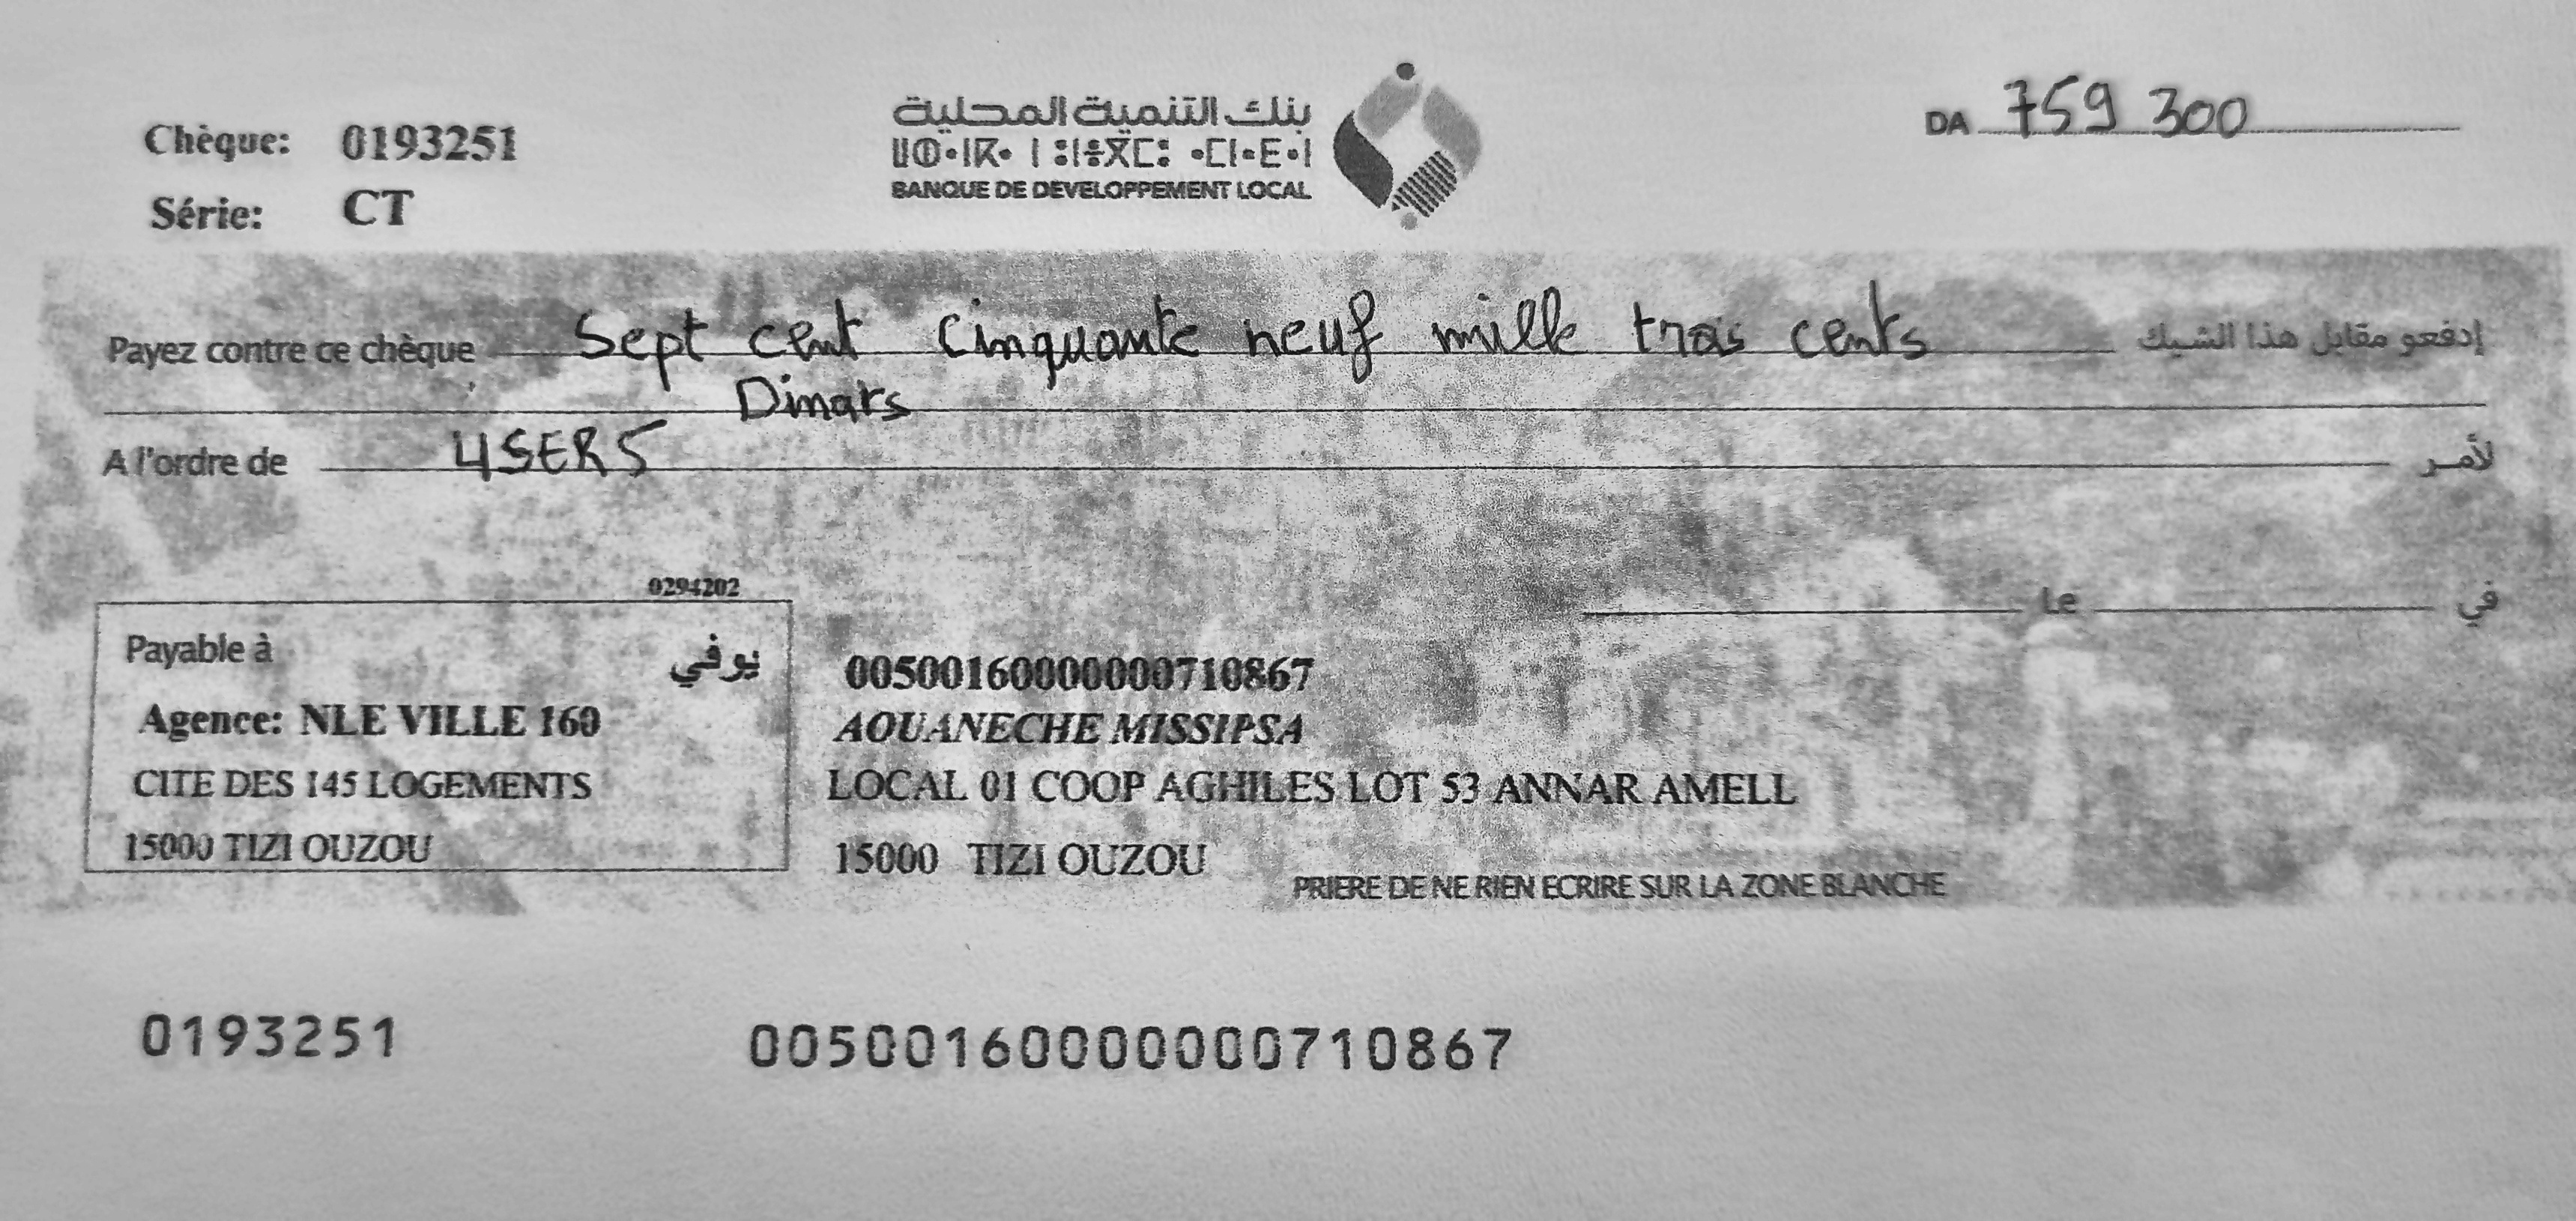 بنك التنمية المحلية
ⵍⴱⴰⵏⴽⴰ ⵏ ⵓⵏⴻⴳⵎⵓ ⴰⵎⵏⴰⴹⴰⵏ
BANQUE DE DEVELOPPEMENT LOCAL
Chèque: 0193251
Série: CT
DA 759 300
Payez contre ce chèque Sept cent Cinquante neuf mille trois cents إدفعو مقابل هذا الشيك
Dinars
A l'ordre de 4SER5 لأمر
0294202
Le في
Payable à يوفي
Agence: NLE VILLE 160
CITE DES 145 LOGEMENTS
15000 TIZI OUZOU
00500160000000710867
AOUANECHE MISSIPSA
LOCAL 01 COOP AGHILES LOT 53 ANNAR AMELL
15000 TIZI OUZOU
PRIERE DE NE RIEN ECRIRE SUR LA ZONE BLANCHE
0193251
00500160000000710867